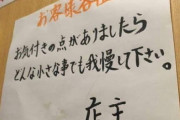 お客様各位
お気付きの点がありましたら
どんな小さな事でも我慢して下さい。
店主